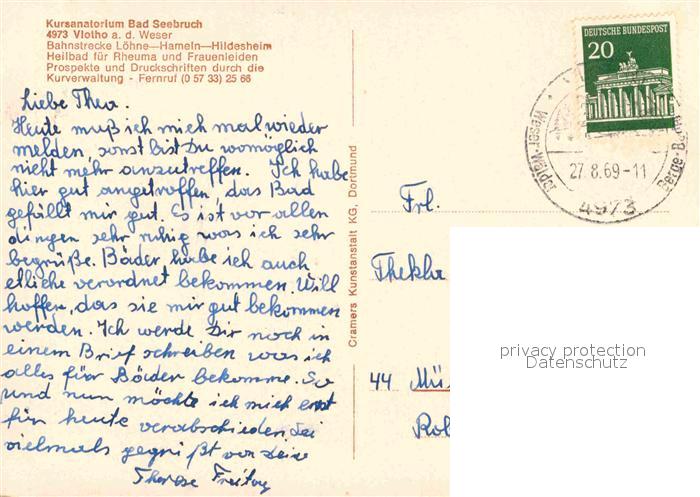 Kursanatorium Bad Seebruch
4973 Vlotho a. d. Weser
Bahnstrecke Löhne—Hameln—Hildesheim
Heilbad für Rheuma und Frauenleiden
Prospekte und Druckschriften durch die
Kurverwaltung - Fernruf (0 57 33) 25 66
Liebe Thea.
Heute muß ich mich mal wieder
melden, sonst bist Du womöglich
nicht mehr anzutreffen. Ich habe
hier gut angetroffen, das Bad
gefällt mir gut. Es ist vor allen
dingen sehr ruhig was ich sehr
begrüße. Bäder habe ich auch
etliche verordnet bekommen. Will
hoffen, das sie mir gut bekommen
werden. Ich werde Dir noch in
einem Brief schreiben was ich
alles für Bäder bekomme. So
und nun möchte ich mich erst
für heute verabschieden. Sei
vielmals gegrüßt von Deine
Therese Freitag
Cramers Kunstanstalt KG, Dortmund
DEUTSCHE BUNDESPOST
20
Weser-Wälder
Berge-Bäder
27.8.69-11
4973
Frl.
Thekla
44 Mü
Rol
privacy protection
Datenschutz